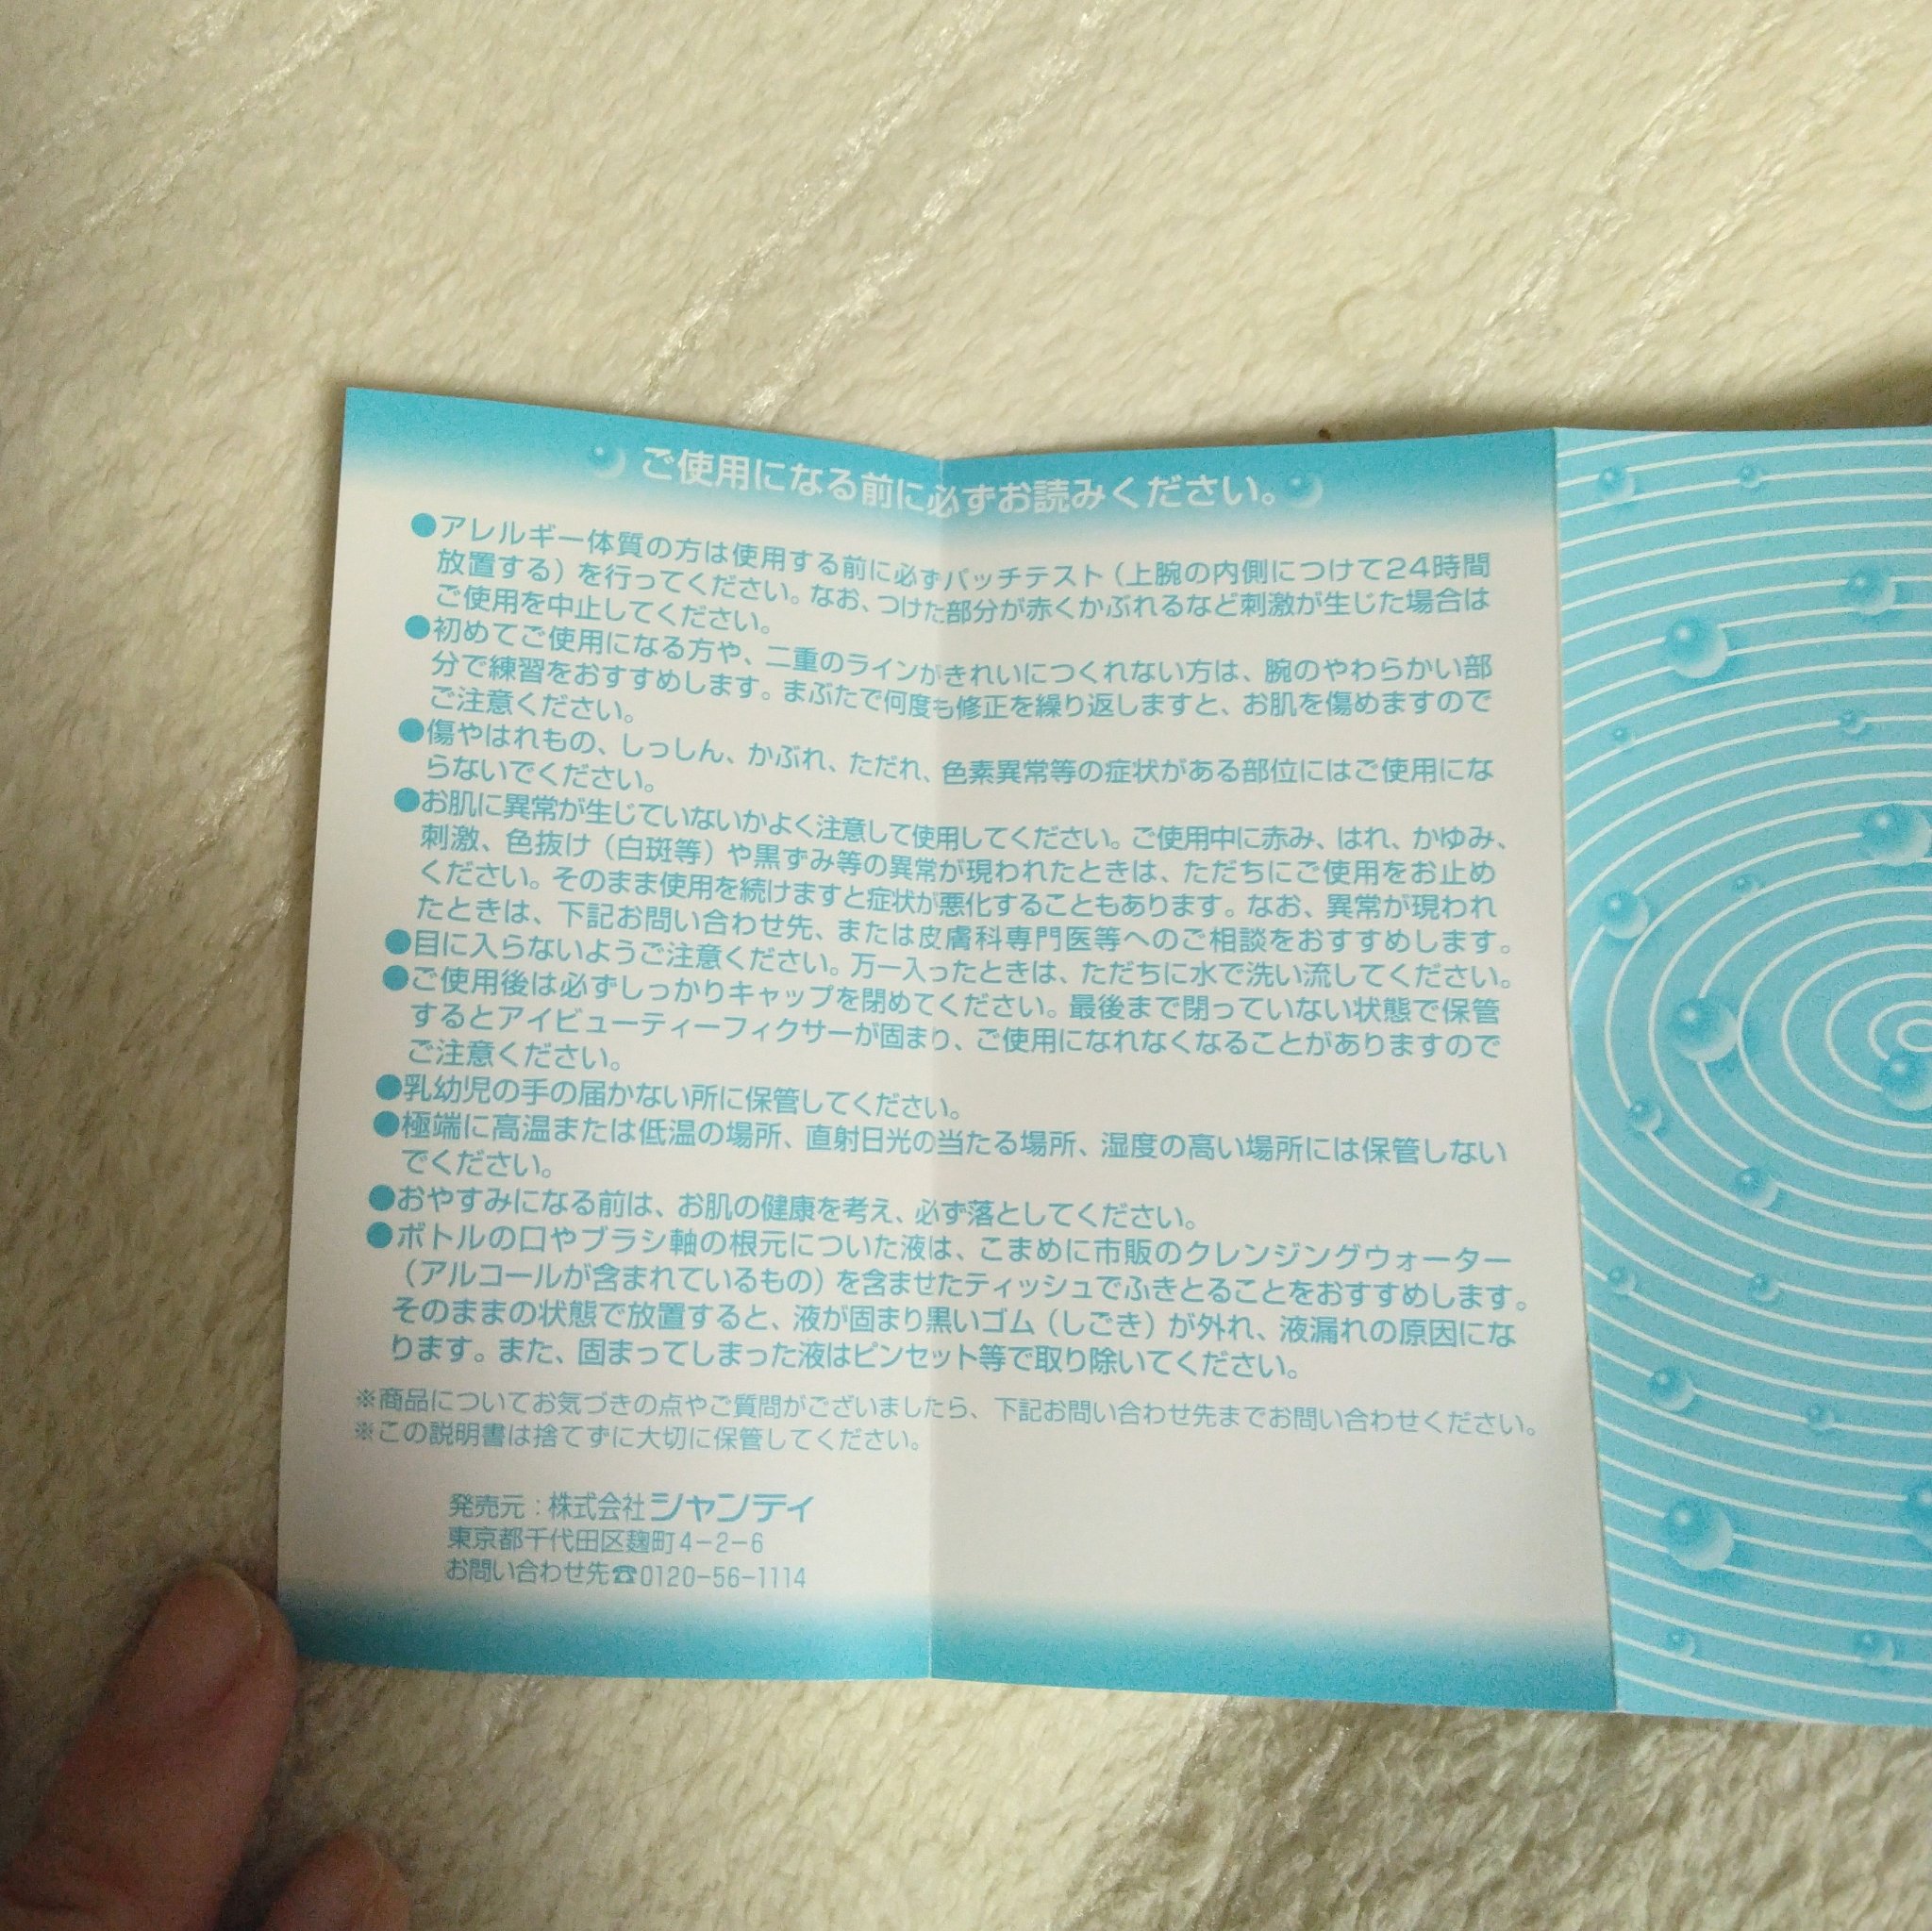 ご使用になる前に必ずお読みください。
●アレルギー体質の方は使用する前に必ずパッチテスト（上腕の内側につけて24時間
放置する）を行ってください。なお、つけた部分が赤くかぶれるなど刺激が生じた場合は
ご使用を中止してください。
●初めてご使用になる方や、二重のラインがきれいにつくれない方は、腕のやわらかい部
分で練習をおすすめします。まぶたで何度も修正を繰り返しますと、お肌を傷めますので
ご注意ください。
●傷やはれもの、しっしん、かぶれ、ただれ、色素異常等の症状がある部位にはご使用にな
らないでください。
●お肌に異常が生じていないかよく注意して使用してください。ご使用中に赤み、はれ、かゆみ、
刺激、色抜け（白斑等）や黒ずみ等の異常が現われたときは、ただちにご使用をお止め
ください。そのまま使用を続けますと症状が悪化することもあります。なお、異常が現われ
たときは、下記お問い合わせ先、または皮膚科専門医等へのご相談をおすすめします。
●目に入らないようご注意ください。万一入ったときは、ただちに水で洗い流してください。
●ご使用後は必ずしっかりキャップを閉めてください。最後まで閉っていない状態で保管
するとアイビューティーフィクサーが固まり、ご使用になれなくなることがありますので
ご注意ください。
●乳幼児の手の届かない所に保管してください。
●極端に高温または低温の場所、直射日光の当たる場所、湿度の高い場所には保管しない
でください。
●おやすみになる前は、お肌の健康を考え、必ず落としてください。
●ボトルの口やブラシ軸の根元についた液は、こまめに市販のクレンジングウォーター
（アルコールが含まれているもの）を含ませたティッシュでふきとることをおすすめします。
そのままの状態で放置すると、液が固まり黒いゴム（しごき）が外れ、液漏れの原因にな
ります。また、固まってしまった液はピンセット等で取り除いてください。
※商品についてお気づきの点やご質問がございましたら、下記お問い合わせ先までお問い合わせください。
※この説明書は捨てずに大切に保管してください。
発売元：株式会社シャンティ
東京都千代田区麹町4−2−6
お問い合わせ先☎0120−56−1114